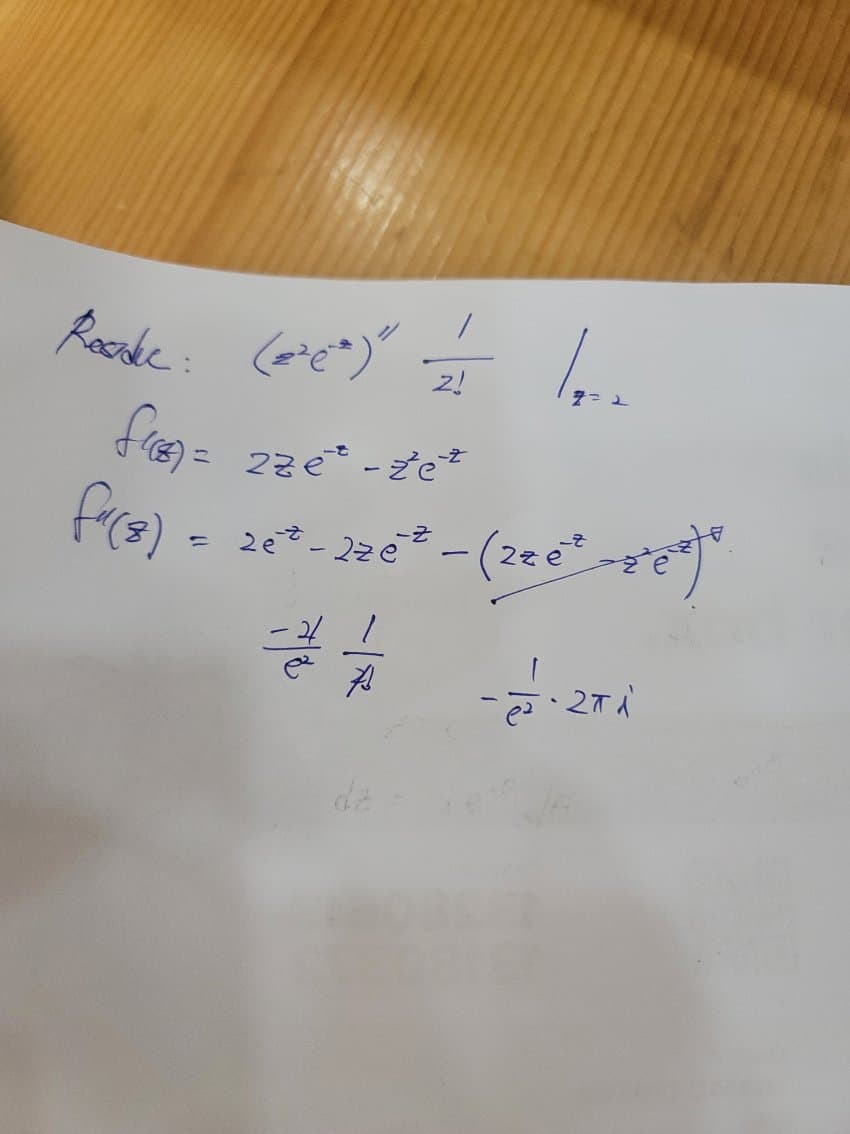 Residue: (z²e⁻ᶻ)'' 1/2! |z=2
f'(z) = 2ze⁻ᶻ - z²e⁻ᶻ
f''(z) = 2e⁻ᶻ - 2ze⁻ᶻ - (2ze⁻ᶻ - z²e⁻ᶻ)
-2/e² 1/2! - 1/e² · 2πi